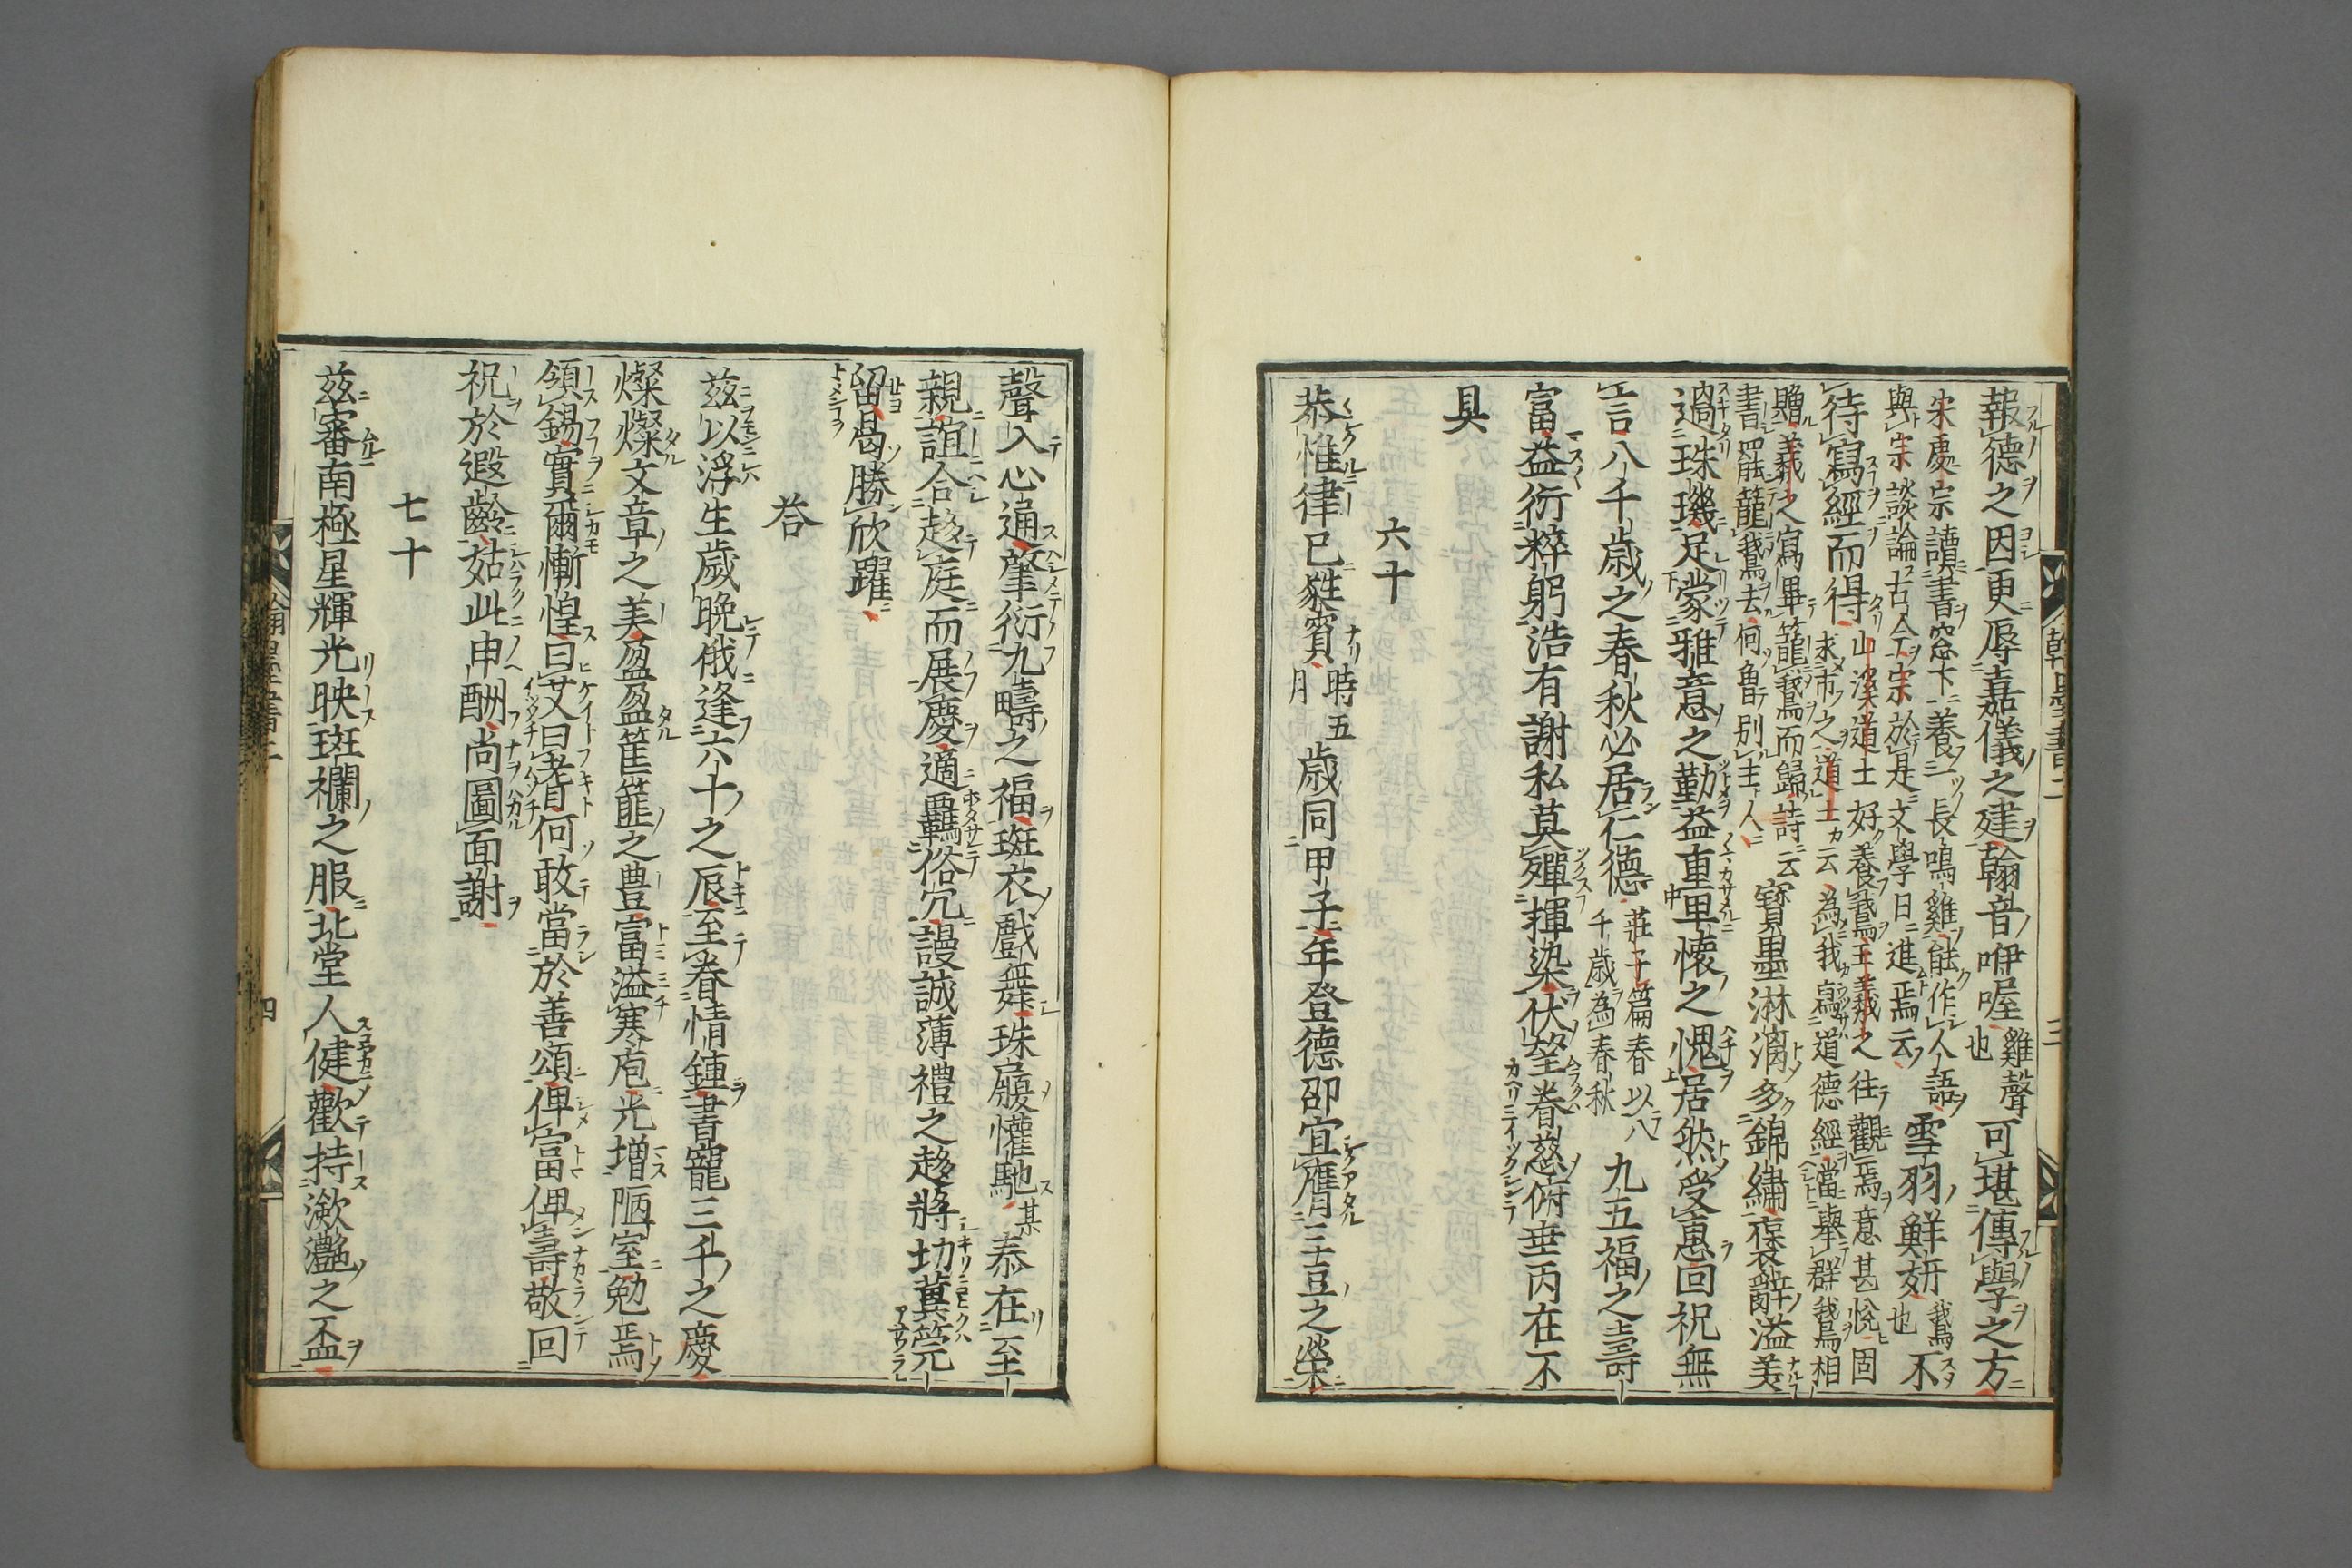 報德之因更辱嘉儀之建翰音咿喔雞聲也可堪傳學之方
朱慶宗讀書窓下養一長鳴雞能作人語
與宗談論古今宗於是文學日進焉云雪羽鮮妍鵞也不
待寫經而得山溪道士好養鵞王羲之往觀焉意甚悅固
求市之道士云為我寫道德經當舉群鵞相
贈羲之寫畢籠鵞而歸詩云
書罷籠鵞去何曾別主人寶墨淋漓多錦繡襃辭溢美
過珠璣足蒙雅意之勤益重里懷之愧居然受惠回祝無
言八千歳之春秋必居仁德莊子篇春以八
千歳為春秋九五福之壽
富益衍粹躬浩有謝私莫殫揮染伏望眷慈俯垂丙在不
具
六十
恭惟律巳甤賓時五月歳同甲子年登德卲宜膺三豆之榮
翰墨書二
三
聲入心通肇衍九疇之福斑衣戲舞珠履懽馳某忝在至
親誼合趍庭而展慶適羈俗冗謾誠薄禮之趍將切兾筦
留曷勝欣躍
荅
茲以浮生歲晩俄逢六十之辰至眷情鍾書寵三千之慶
燦燦文章之美盈盈筐篚之豊富溢寒庖光增陋室勉焉
領錫實爾慚惶曰艾曰耆何敢當於善頌俾富俾壽敬回
祝於遐齡姑此申酬尚圖面謝
七十
茲審南極星輝光映斑襴之服北堂人健歡持瀲灧之盃
翰墨書二
四